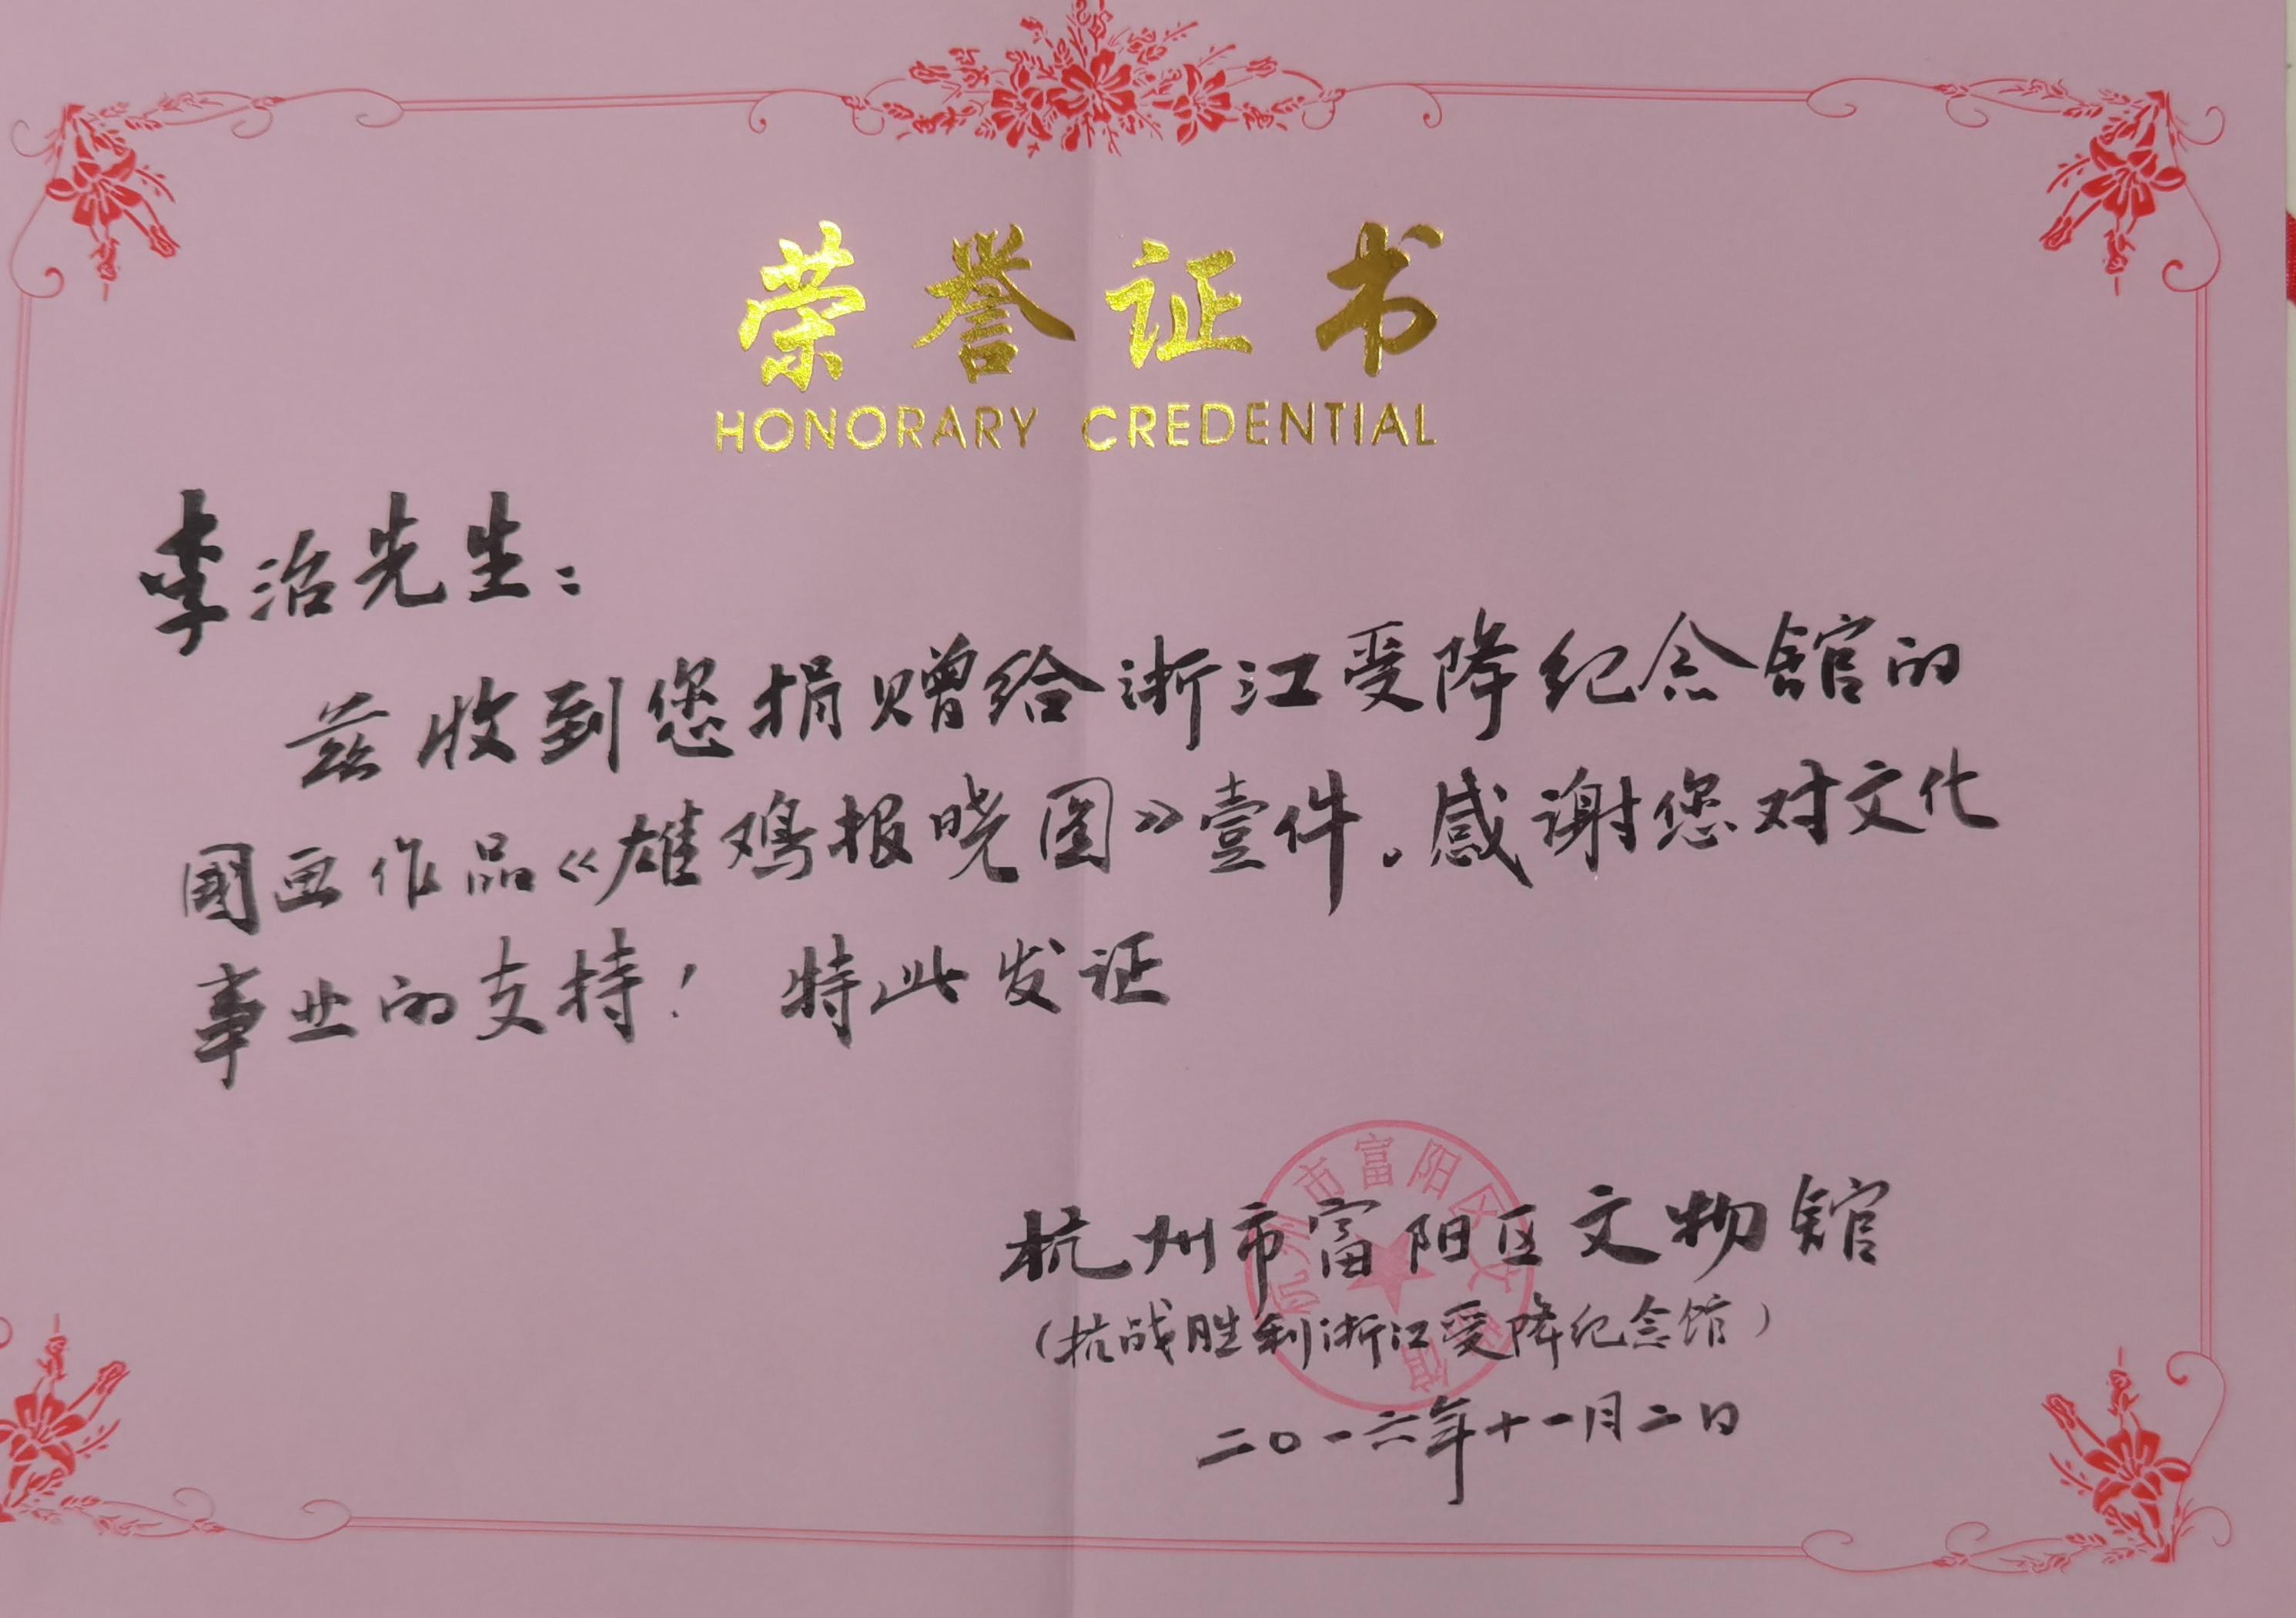 荣誉证书
HONORARY CREDENTIAL
李治先生：
兹收到您捐赠给浙江受降纪念馆的
國画作品《雄鸡报晓图》壹件。感谢您对文化
事业的支持！ 特此发证
杭州市富阳区文物馆
（抗战胜利浙江受降纪念馆）
二〇一六年十一月二日
杭州市富阳区文物馆